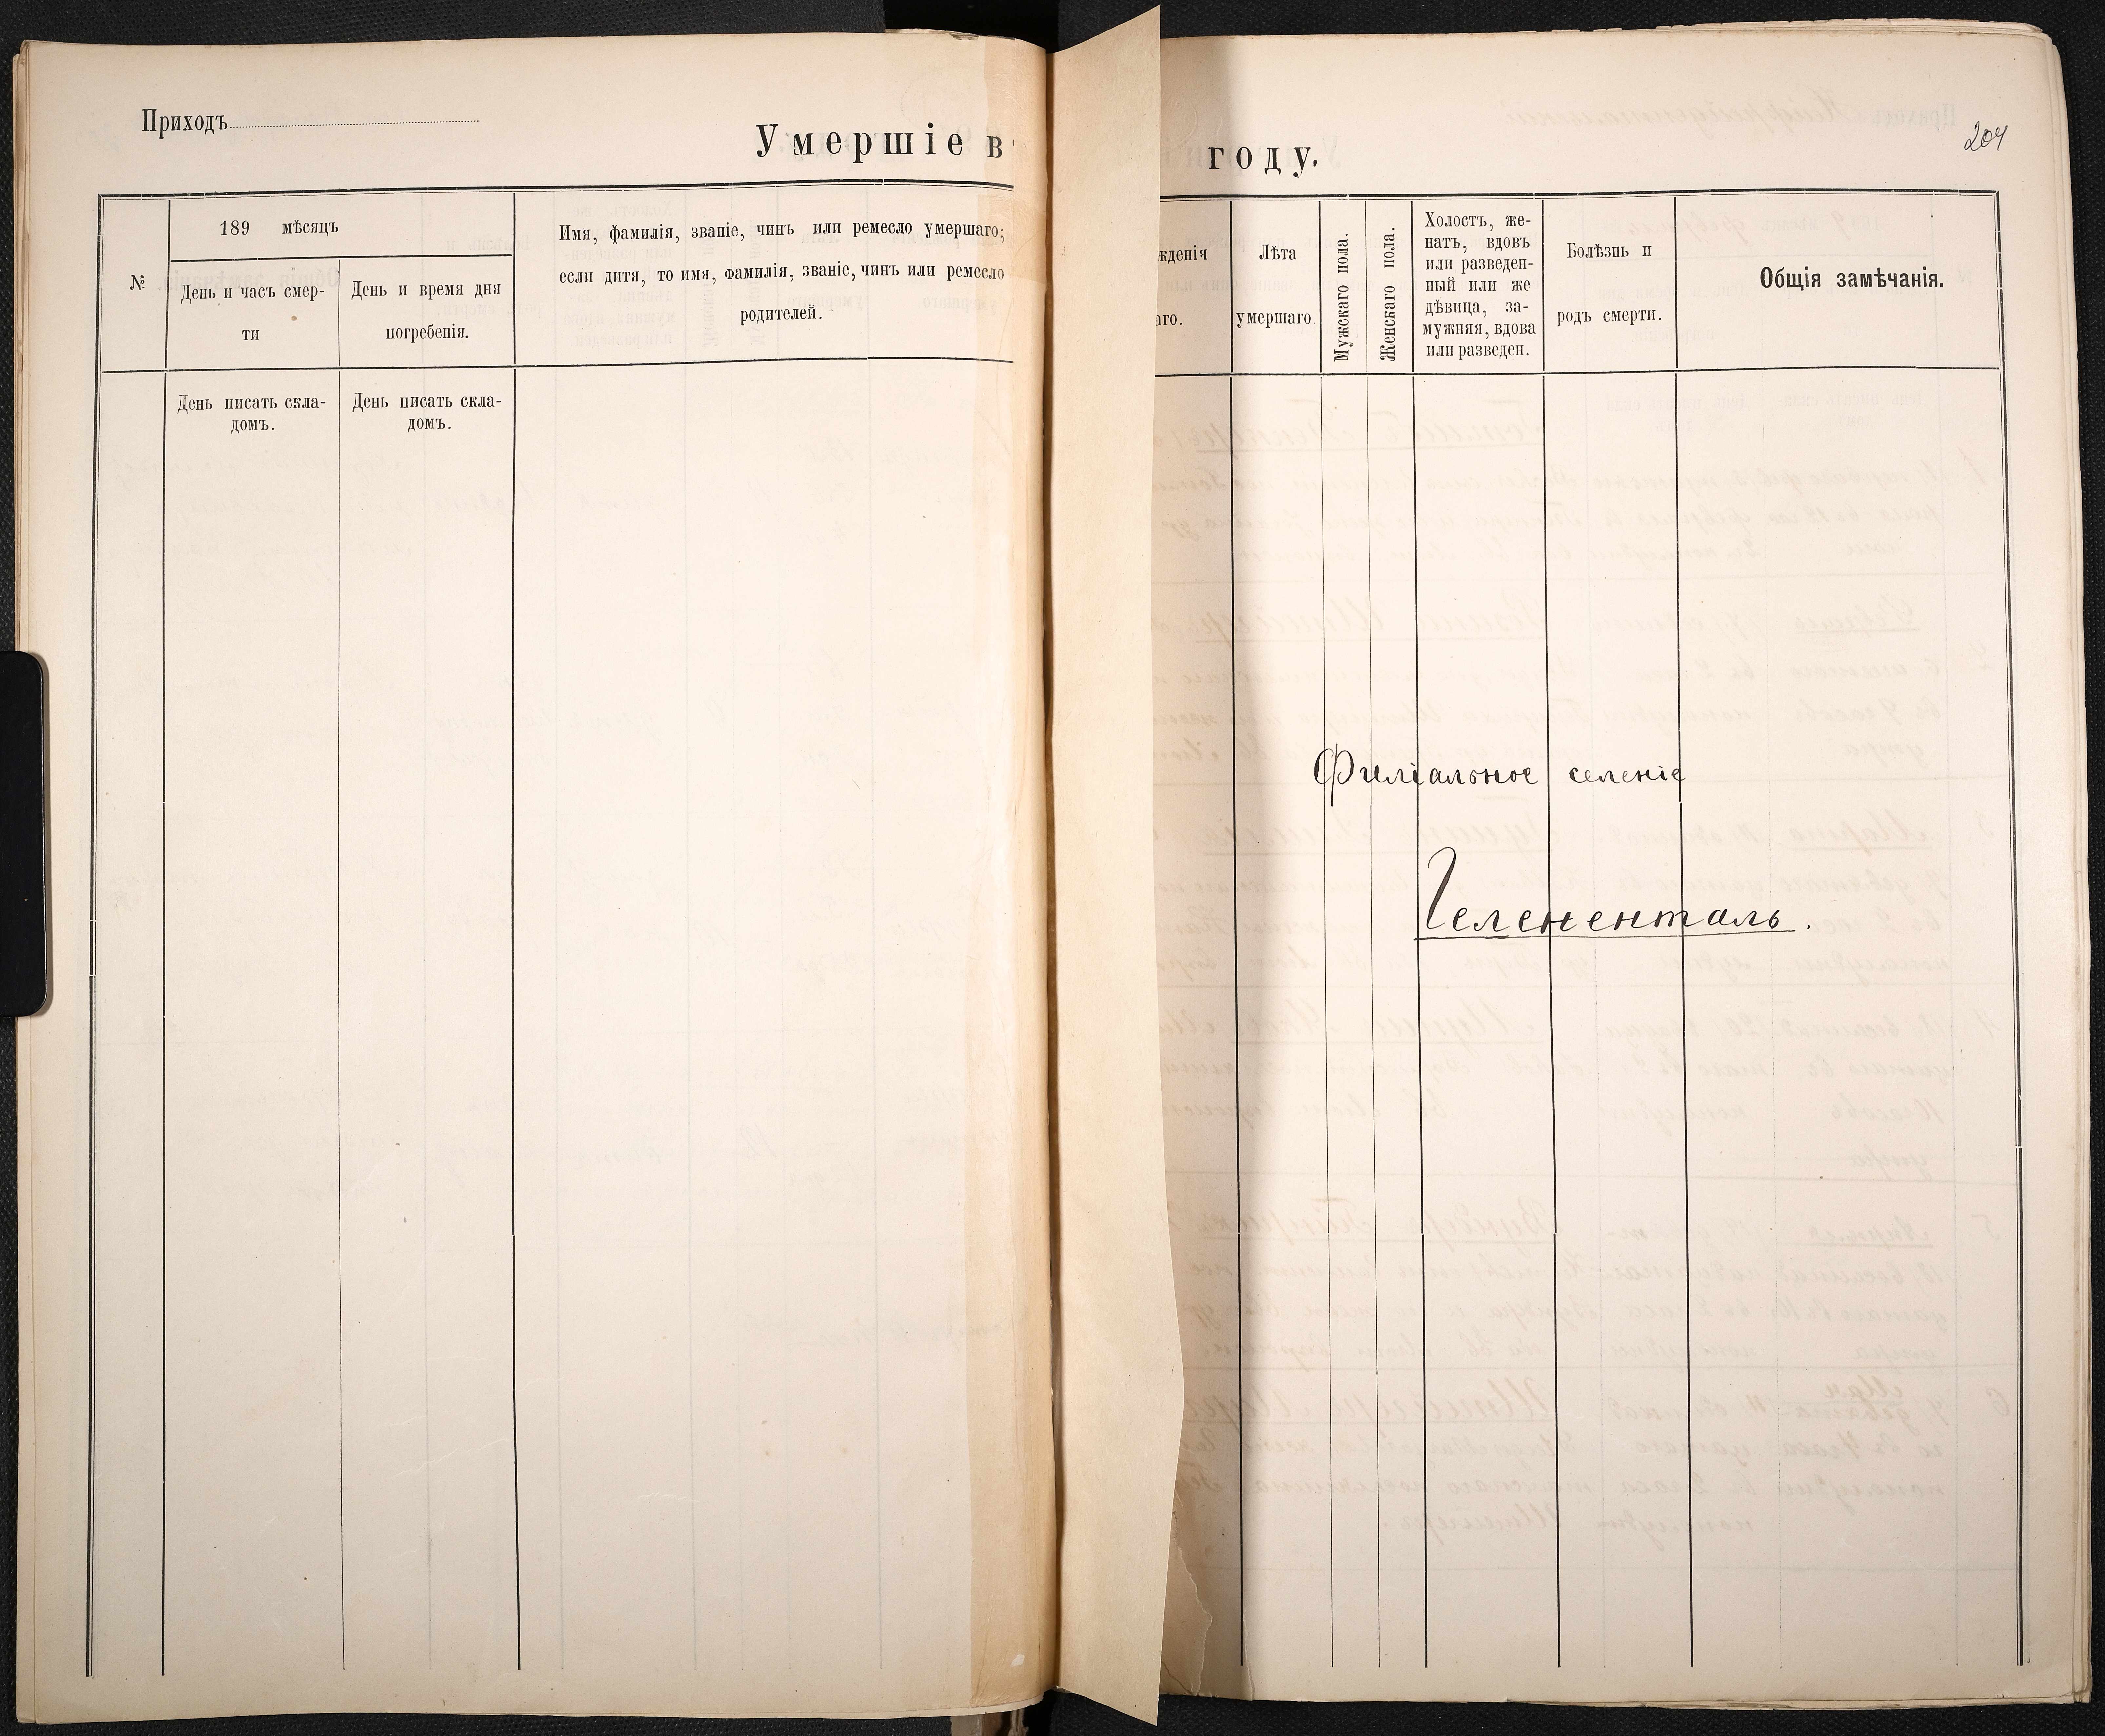 Приходъ
Умершіе в
№
189 мѣсяцъ
День и часъ смер-
ти
День и время дня
погребенія.
Имя, фамилія, званіе, чинъ или ремесло умершаго;
если дитя, то имя, фамилія, званіе, чинъ или ремесло
родителей.
День писать скла-
домъ.
День писать скла-
домъ.
году.
204
жденія
аго.
Лѣта
умершаго.
Мужскаго пола.
Женскаго пола.
Холостъ, же-
натъ, вдовъ
или разведен-
ный или же
дѣвица, за-
мужняя, вдова
или разведен.
Болѣзнь и
родъ смерти.
Общія замѣчанія.
Филіальное селеніе
Гелененталь.